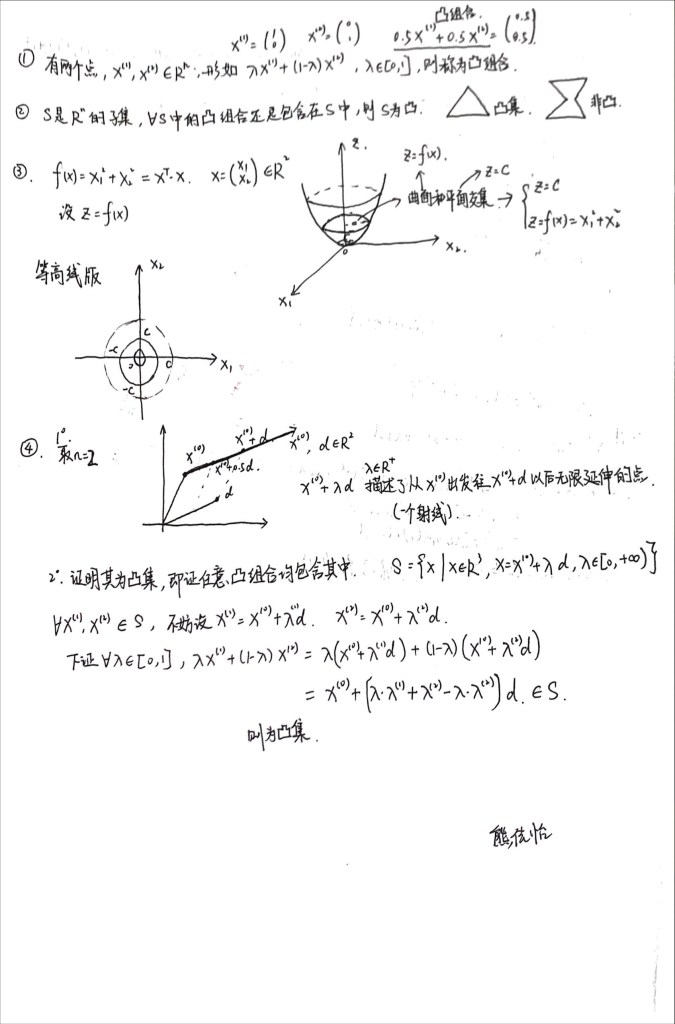 凸组合.
x⁽¹⁾=(1 0) x⁽²⁾=(0 1) 0.5x⁽¹⁾+0.5x⁽²⁾=(0.5 0.5)
① 有两个点, x⁽¹⁾, x⁽²⁾∈Rⁿ, 形如 λx⁽¹⁾+(1-λ)x⁽²⁾, λ∈[0,1], 则称为凸组合.
② S是Rⁿ的子集, ∀S中的凸组合还是包含在S中, 则S为凸. 凸集. 非凸.
③. f(x)=x₁²+x₂²=xᵀ·x. x=(x₁ x₂)∈R²
设 z=f(x)
z.
z=f(x).
z=C
曲面和平面交集 → { z=C
z=f(x)=x₁²+x₂²
0
x₂.
x₁
等高线版
x₂
C
-C
C
x₁
-C
④. 1°.
取n=2
x⁽⁰⁾
x⁽⁰⁾+d
x⁽⁰⁾+0.5d.
d
x⁽⁰⁾, d∈R²
λ∈R⁺
x⁽⁰⁾+λd 描述了从x⁽⁰⁾出发往x⁽⁰⁾+d以后无限延伸的点.
(一个射线).
2°. 证明其为凸集, 即证任意凸组合均包含其中. S={x|x∈R³, x=x⁽⁰⁾+λd, λ∈[0,+∞)}
∀x⁽¹⁾, x⁽²⁾∈S, 不妨设 x⁽¹⁾=x⁽⁰⁾+λ⁽¹⁾d. x⁽²⁾=x⁽⁰⁾+λ⁽²⁾d.
下证∀λ∈[0,1], λx⁽¹⁾+(1-λ)x⁽²⁾=λ(x⁽⁰⁾+λ⁽¹⁾d)+(1-λ)(x⁽⁰⁾+λ⁽²⁾d)
=x⁽⁰⁾+[λ·λ⁽¹⁾+λ⁽²⁾-λ·λ⁽²⁾]d. ∈S.
则为凸集.